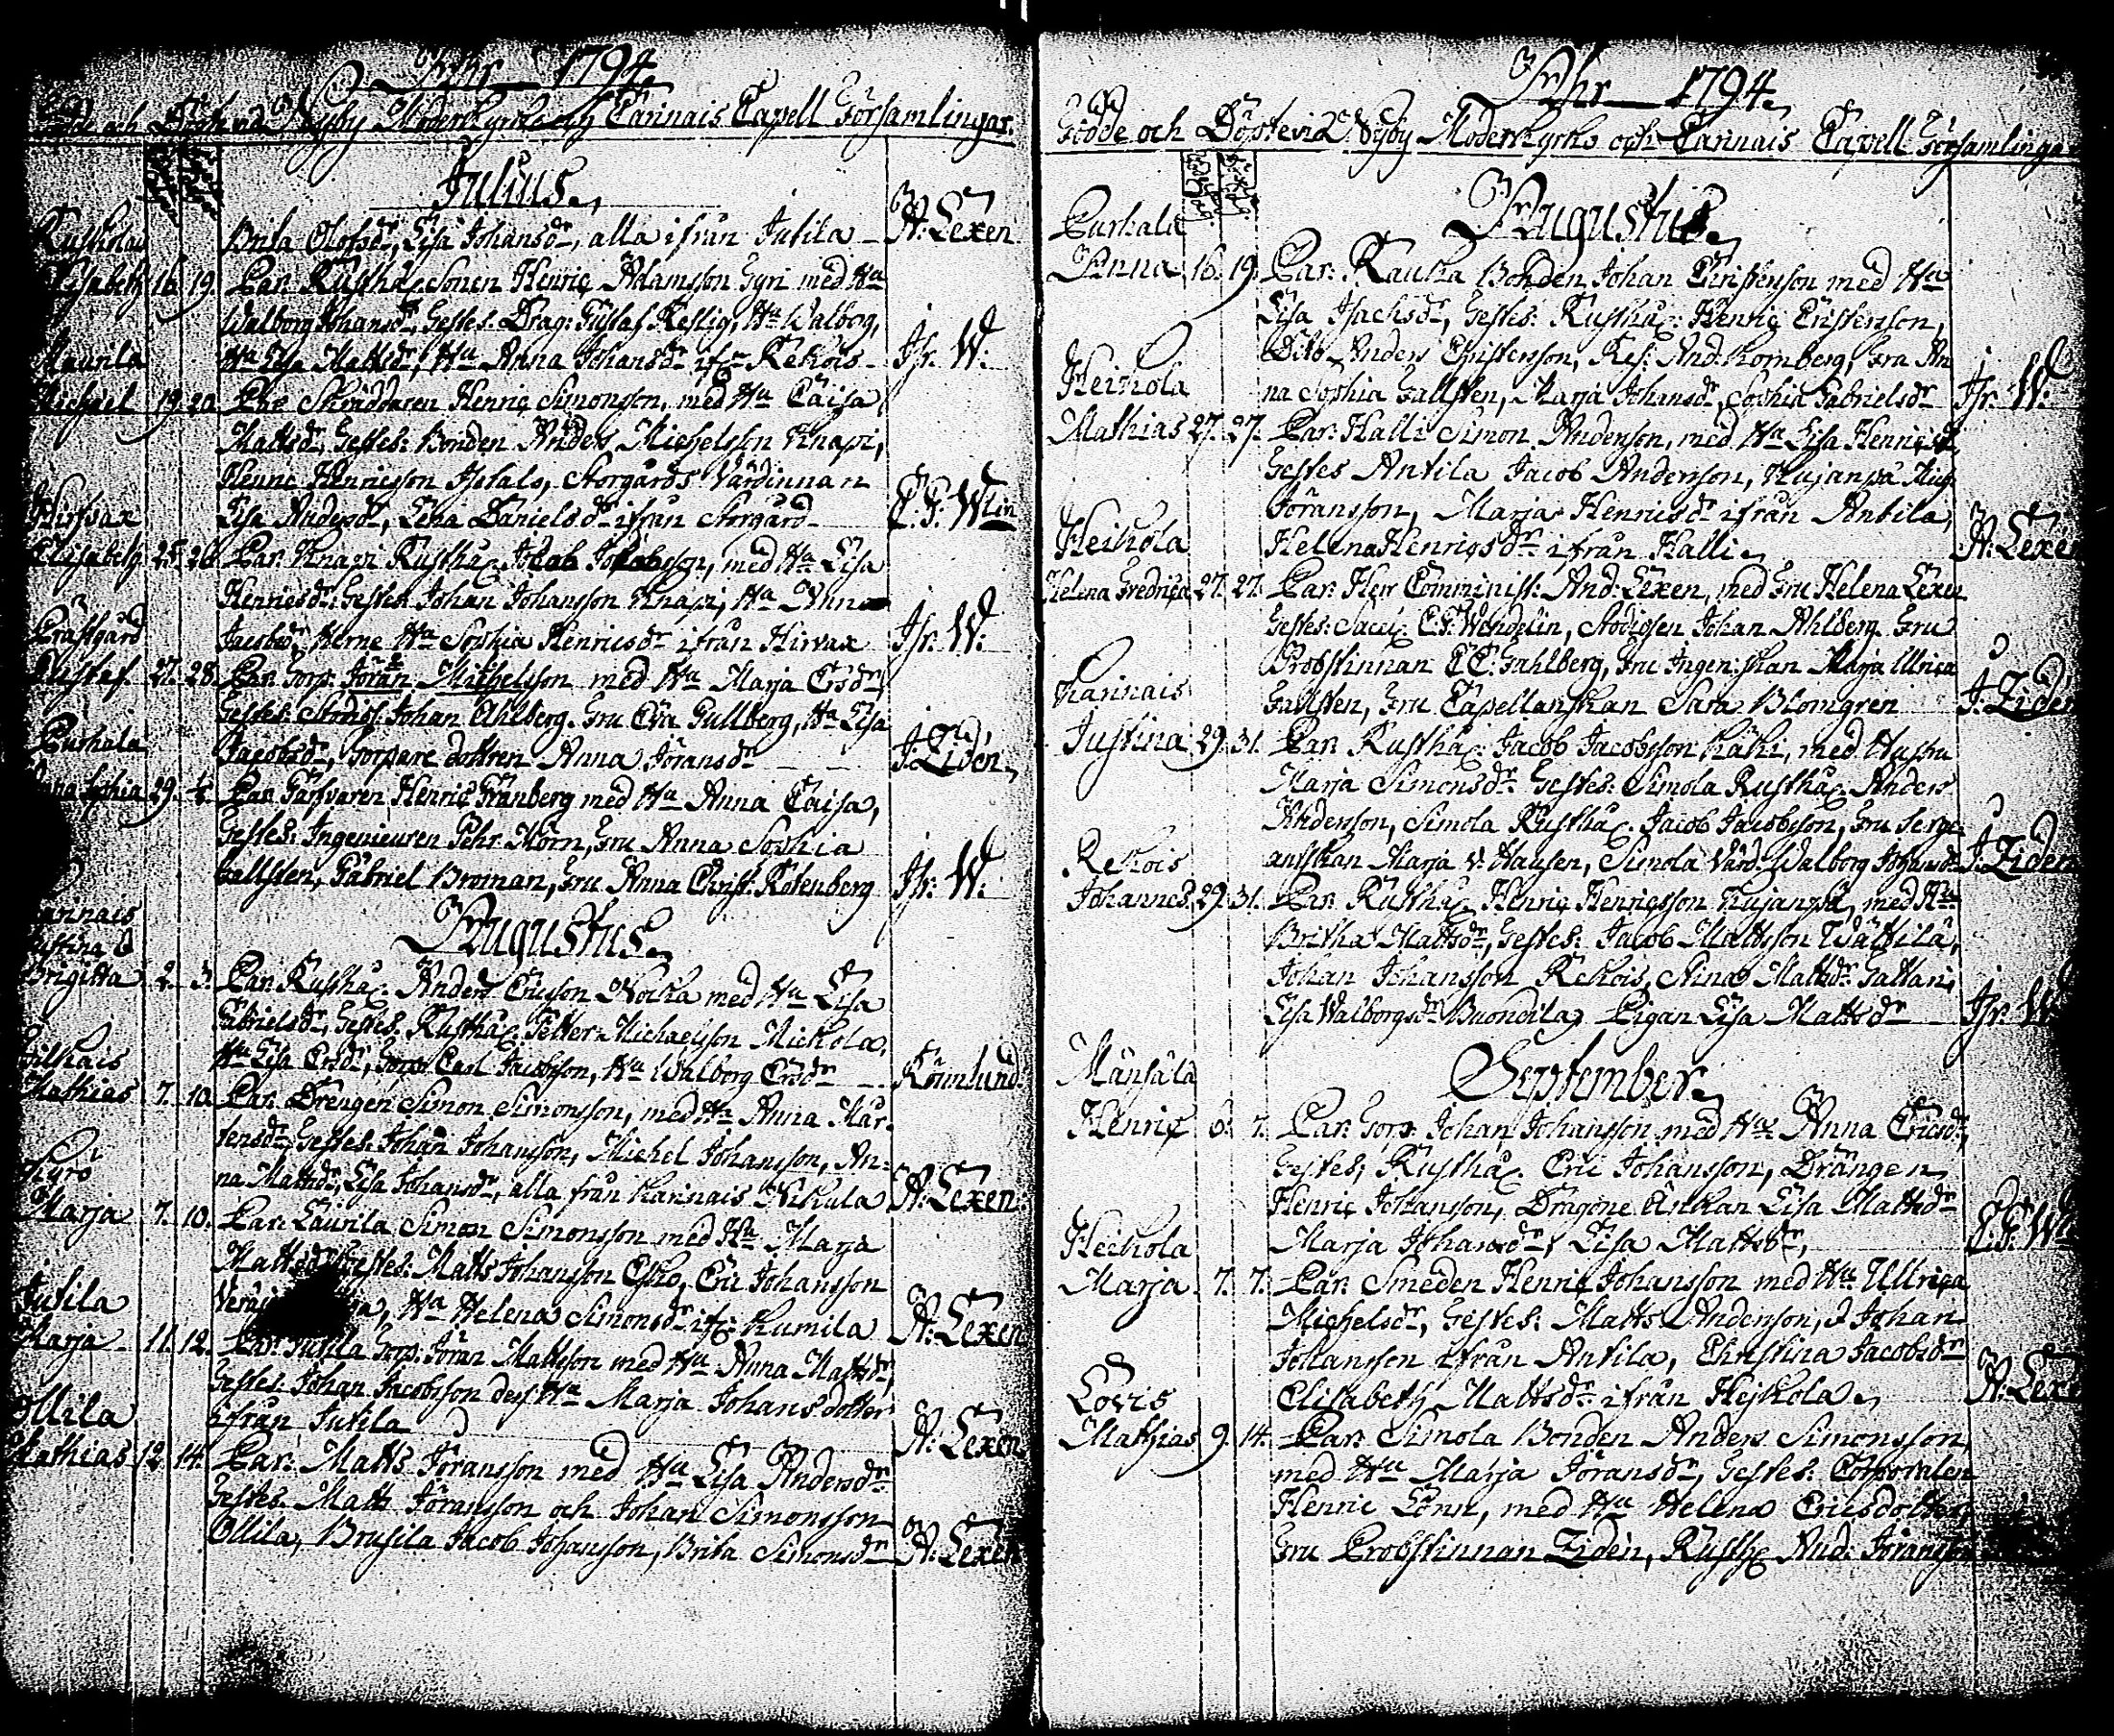 Åhr 1794.
och Nyby Moderkyrcko och Carinais Capell Församlingar.
Julius.
Brita Olofsdr, Lisa Johansdr, alla ifrån Jutila A: Lexen
Elisabeth 16. 19. Par. Rusthål. Sonen Henric Adamsson Gyri med Hu
Walborg Johansdr, Gestes: Drag: Gustaf Keslig, Hu Walborg,
Maunila Hu Lisa Mattsdr, Hu Anna Johansdr ifr Rekois Jfr. W:
Michael 19. 20. Par Skräddaren Henric Simonsson, med Hu Caisa
Mattsdr, Gestes: Bonden Anders Michelsson Knapi,
Henric Henricsson Storgårds Värdinnan
Hirfvax Lisa Andersdr, Lena Danielsdr ifrån Storgård C. F. Wlin
Elisabeth 25. 26. Par. Knapi Rusthål. Jacob Jacobsson, med Hu Lisa
Henricsdr: Gestes Johan Johansson Knapi, Hu Anna
Prästgård Jacobsdr, Hu Sophia Henricsdr ifrån Hirvax Jfr. W:
Gustaf 27. 28. Par. Corp: Jöran Michelsson med Hu Marja Ersdr,
Gestes: Studios. Johan Ahlberg. Fru Eva Gullberg, Hu Lisa
Purhala Jacobsdr, dottren Anna Jöransdr J: Zidén,
Anna Sophia 29. Par. Färfvaren Henric Granberg med Hu Anna Caisa,
Gestes: Ingenieuren Pehr Mörn, Fru Anna Sophia
Gallsten, Gabriel Broman, Fru Anna Christ: Rotenberg Jfr: W:
Augustus.
Carinais
Justina
Brigitta 2. 3. Par. Rusthål: Anders Ericsson Nokka med Hu Lisa
Gabrielsdr, Gestes. Rusthål: Petter Michaelsson Mickola,
Hu Lisa Ersdr, Carl Jacobsson, Hu Walborg Ersdr Römlund.
Mathias 7. 10. Par. Drengen Simon Simonsson, med Hu Anna Mår-
tensdr, Gestes: Johan Johansson, Michel Johansson, An-
Kyrö na Mattsdr, Lisa Johansdr, alla från Karinais Nikula A: Lexen.
Marja 7. 10. Par: Laurila Simon Simonsson med Hu Marja
Mattsdr Gestes: Matts Johansson Esko, Eric Johansson
Jutila Hu Helena Simonsdr ifr: Kumila A: Lexen
Marja 11. 12. Par: Jutila Corp: Jöran Mattsson med Hu Anna Mattsdr,
Gestes Johan Jacobsson dess Hu Marja Johans dotter
Ollila ifrån Jutila A: Lexen
Mathias 12. 14. Par: Matts Jöransson med Hu Lisa Andersdr
Gestes. Matts Jöransson och Johan Simonsson
Ollila, Brusila Jacob Johansson, Brita Simonsdr A: Lexen
Åhr 1794.
Födde och Döpte vid Nyby Moderkyrko och Carinais Capell Församlingar
Augustus.
Purhala
Anna 16. 19. Par: Rautta Bonden Johan Christersson med Hu
Lisa Isachsdr, Gestes: Rusthål: Henric Cristersson,
Dito Anders Christersson, Ref: And: Kornberg, Fru An
Heikola na Sophia Gallsten, Marja Johansdr, Sophia Gabrielsdr Jfr. W:
Mathias 27. 27. Par: Halli Simon Andersson, med Hu Lisa Henricsdr
Gestes Antila Jacob Andersson, Kujanpä Mich
Jöransson, Marja Henricsdr ifrån Antila,
Heikola Helena Henricsdr ifrån Halli A: Lexen
Helena Fredrica 27. 27. Par. Herr Comminist: And: Lexen, med Fru Helena Lexen
Gestes: C. F. Wendelin, Studiosen Johan Ahlberg Fru
Probstinnan C C: Fahlberg, Fru Ingen: skan Marja Ulrica
Karinais Gallsten, Fru Capellanskan Sara Blomgren J: Ziden
Justina 29. 31. Par. Rusthål: Jacob Jacobsson Käki, med Hustru
Marja Simonsdr Gestes: Simola Rusthål: Anders
Andersson, Simola Rusthål. Jacob Jacobsson, Fru serge
Rekois antskan Marja v. Hausen, Simola Värd: Walborg Johansdr J: Ziden
Johannes 29. 31. Par. Rusthål: Henric Henricsson Kujanpä, med Hu
Britha Mattsdr, Gestes: Jacob Mattsson Wättilä,
Johan Johansson Rekois, Stina Mattsdr Gattani
Lisa Walborgsdr Buondila, Pigan Lisa Mattsdr Jfr. W
September.
Mänsälä
Henric 6. 7. Par: Corp: Johan Johansson med Hu Anna Ericsdr,
Gestes, Rusthål. Eric Johansson, Drängen
Henric Johansson, Dragone Änkan Lisa Mattsdr
Heikola Marja Johansdr, Lisa Mattsdr, C: F: Wl
Marja 7. 7. Par. Smeden Henric Johansson med Hu Ullrica
Michelsdr, Gestes: Matts Andersson, Johan
Johansson ifrån Antila, Christina Jacobsdr
Lövis Elisabeth Mattsdr ifrån Hejkola A: Lexe
Mathias 9. 14. Par: Simola Bonden Anders Simonsson,
med Hu Marja Jöransdr, Gestes: Corporalen
Henric Lönn, med Hu Helena Ericsdotter
Fru Probstinnan Zidén, Rusth: And: Jöransson